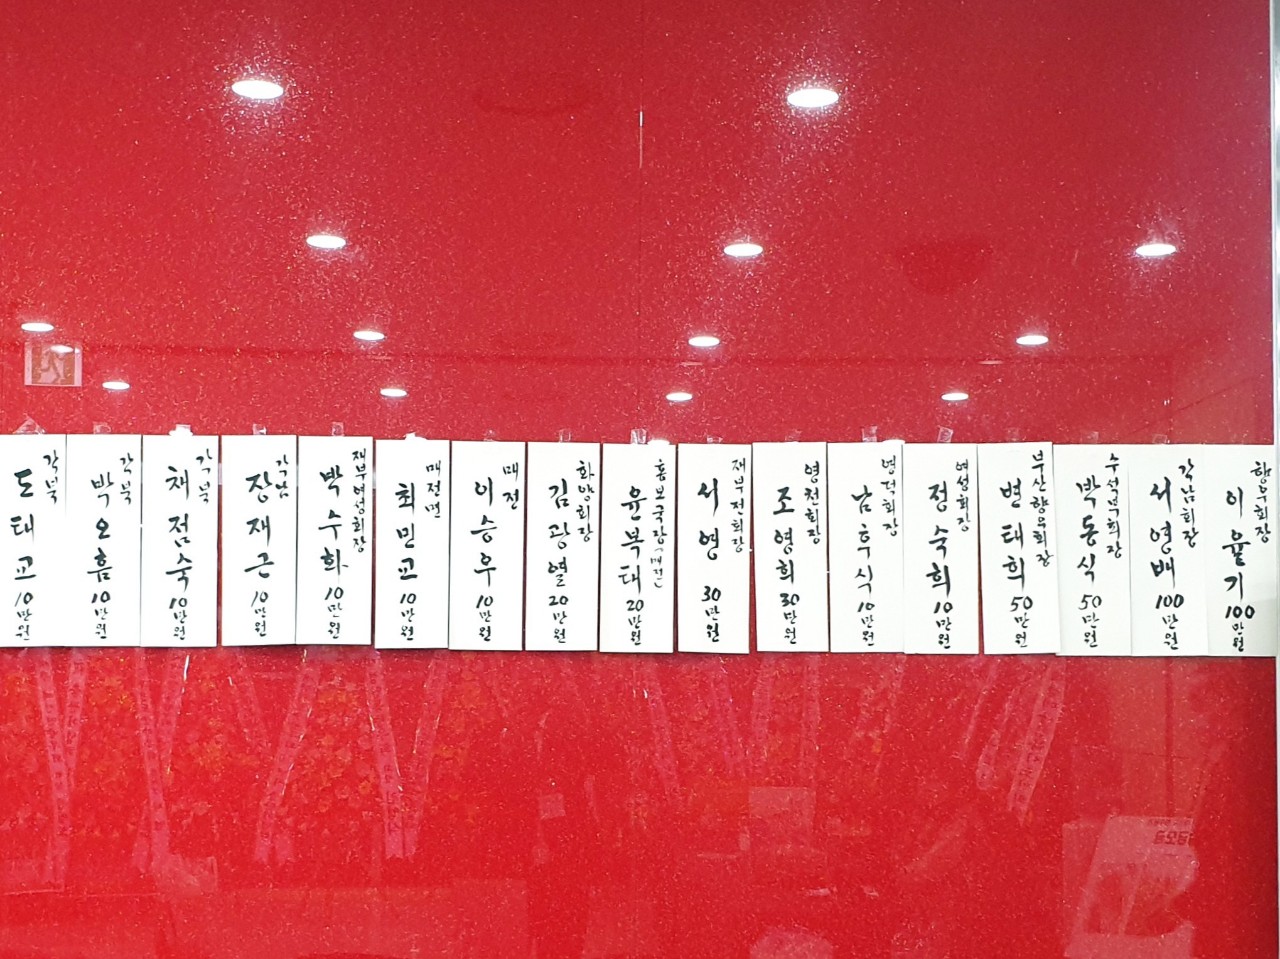 각북
도태교 10만원
각북
박오흠 10만원
각북
채점숙 10만원
각남
장재근 10만원
재부여성회장
박수화 10만원
매전면
최민교 10만원
매전
이승우 10만원
화양회장
김광열 20만원
홍보국장(매전)
윤복태 20만원
재부전회장
서영 30만원
영천회장
조영희 30만원
남후식 10만원
여성회장
정숙희 10만원
부산향우회장
변태희 50만원
수석부회장
박동식 50만원
각남회장
서영배 100만원
향우회장
이윤기 100만원